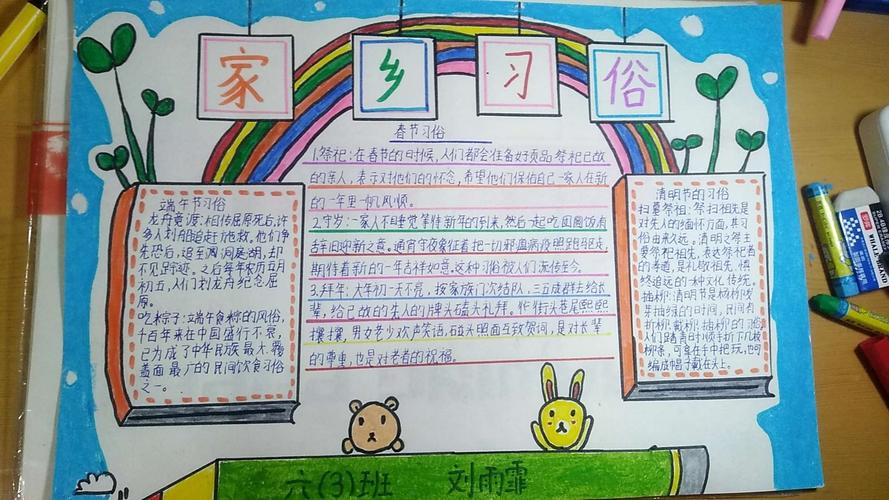 家乡习俗
端午节习俗
龙舟竞渡:相传屈原死后,许
多人划船追赶拯救。他们争
先恐后,追至洞庭湖,却
不见踪迹。之后每年农历五月
初五,人们划龙舟纪念屈
原。
吃粽子:端午食粽的风俗,
千百年来在中国盛行不衰,
已为成了中华民族最大覆
盖面最广的民间饮食习俗
之一。
春节习俗
1.祭祀:在春节的时候,人们都会准备好贡品祭祀已故
的亲人,表示对他们的怀念,希望他们保佑自己一家人在新
的一年里一帆风顺。
2.守岁:一家人不睡觉等待新年的到来,然后一起吃团圆饭有
辞旧迎新之意。通宵守夜象征着把一切邪瘟病疫照跑驱走,
期待着新的一年吉祥如意。这种习俗被人们流传至今。
3.拜年:大年初一天不亮,按家族门次结队,三五成群去给长
辈,给已故的亲人的牌头磕头礼拜。街头巷尾熙熙
攘攘,男女老少欢声笑语,碰头照面互致贺词,是对长辈
的尊重,也是对老者的祝福。
清明节的习俗
扫墓祭祖:祭扫祖先是
对先人的缅怀方面,其习
俗由来久远。清明之祭主
要祭祀祖先,表达祭祀者
的孝道,是礼敬祖先、慎
终追远的一种文化传统。
插柳:清明节是杨柳发
芽抽绿的时间,民间有
折柳、戴柳、插柳的习俗
人们踏青时顺手折下几枝
柳条,可拿在手中把玩,也可
编成帽子戴在头上。
六(3)班 刘雨霏
WHALE BRAND